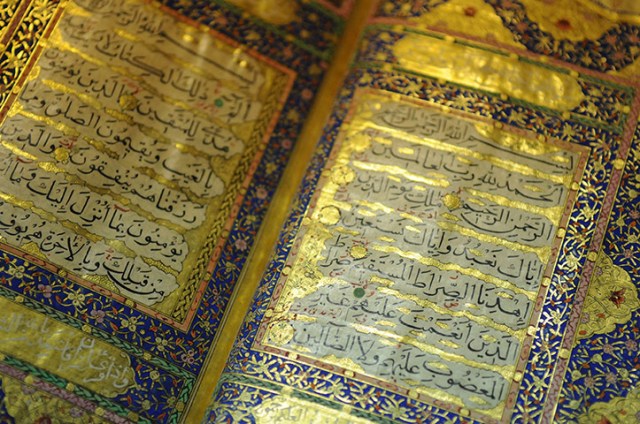 بِسْمِ اللهِ الرَّحْمٰنِ الرَّحِيمِ
اَلْحَمْدُ لِلّٰهِ رَبِّ الْعَالَمِينَ
الرَّحْمٰنِ الرَّحِيمِ مٰلِكِ يَوْمِ الدِّينِ
اِيَّاكَ نَعْبُدُ وَاِيَّاكَ نَسْتَعِينُ
اِهْدِنَا الصِّرَاطَ الْمُسْتَقِيمَ صِرَاطَ
الَّذِينَ اَنْعَمْتَ عَلَيْهِمْ غَيْرِ
الْمَغْضُوبِ عَلَيْهِمْ وَلَا الضَّالِّينَ
بِسْمِ اللهِ الرَّحْمٰنِ الرَّحِيمِ
الٓمٓ ذٰلِكَ الْكِتَابُ لَا رَيْبَ
هُدًى لِلْمُتَّقِينَ الَّذِينَ يُؤْمِنُونَ
بِالْغَيْبِ وَيُقِيمُونَ الصَّلٰوةَ وَمِمَّا
رَزَقْنَاهُمْ يُنْفِقُونَ وَالَّذِينَ
يُؤْمِنُونَ بِمَا اُنْزِلَ اِلَيْكَ وَمَا
مِنْ قَبْلِكَ وَبِالْاٰخِرَةِ هُمْ